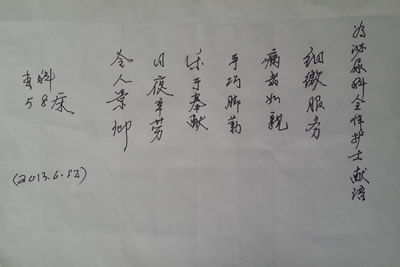 为泌尿科全体护士献语
细微服务
病者如亲
手巧脚勤
乐于奉献
日夜辛劳
令人景仰
本科
58床
(2013.6.12)